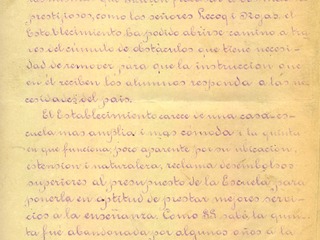 prestijiosos, como los señores Lecoq i Rojas, el
Establecimiento ha podido abrirse camino a tra
ves del cúmulo de obstáculos que tiene necesi
dad de remover para que la instruccion que
en él reciben los alumnos responda a las ne
cesidades del pais.
El Establecimiento carece de una casa es
cuela mas amplia i mas cómoda i la quinta
en que funciona, poco aparente por su ubicacion,
estension i naturaleza, reclama desembolsos
superiores al presupuesto de la Escuela para
ponerla en aptitud de prestar mejores servi
cios a la enseñanza. Como US. sabe la quin
ta fue abandonada por algunos años a la